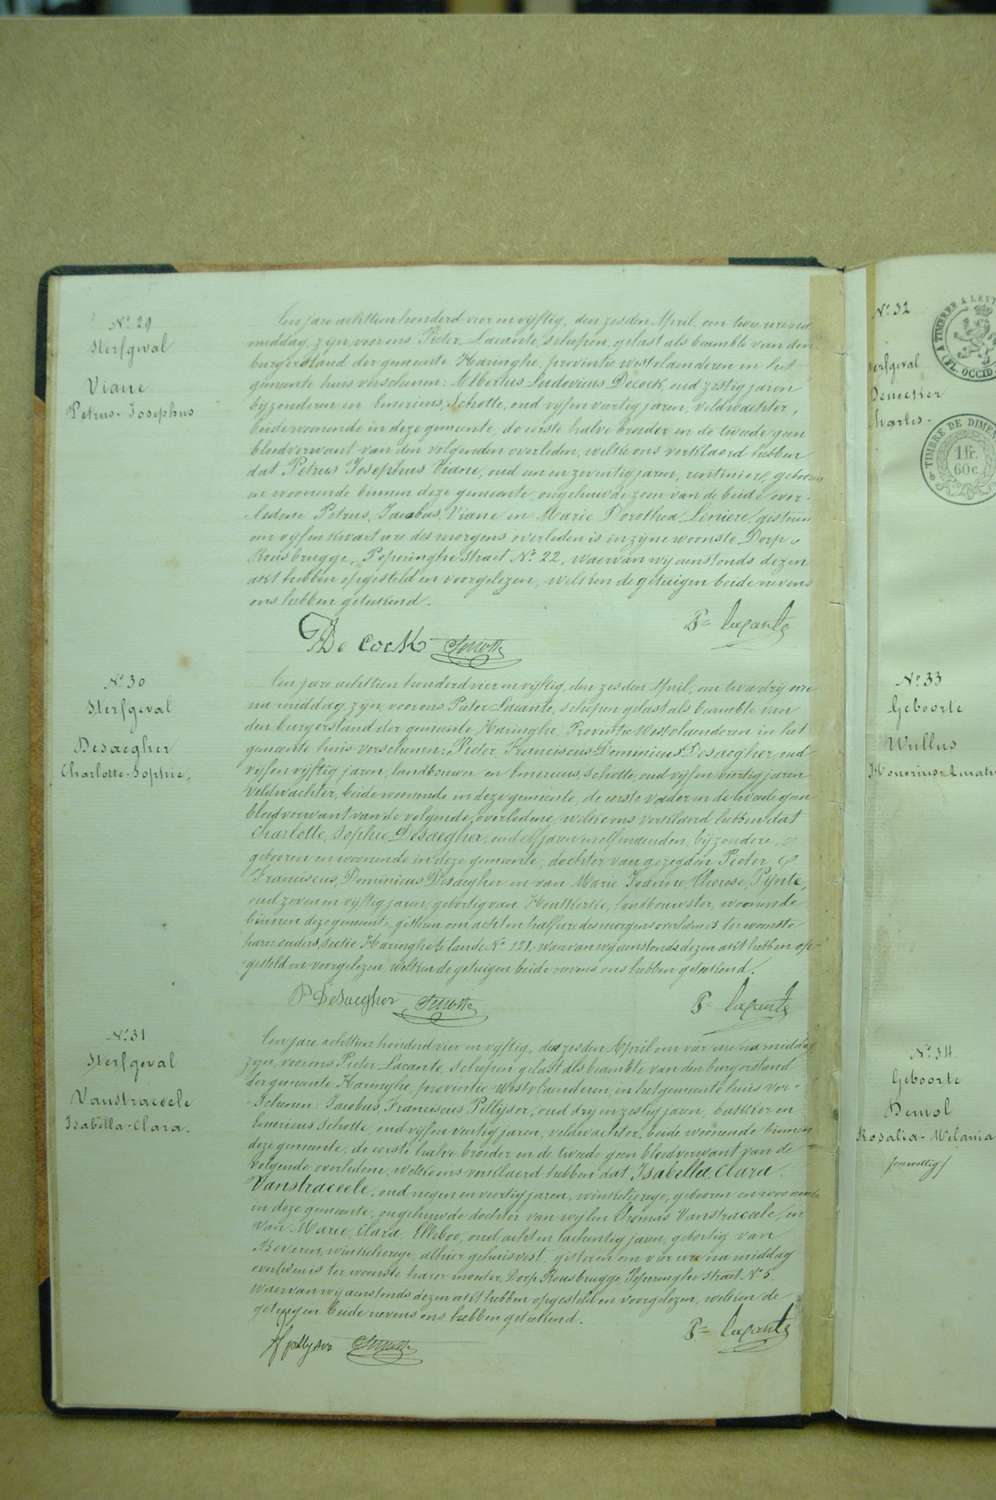 Nº 29
Sterfgeval
Viane
Petrus-Josephus
Een jare achttien honderd vier en vyftig, den zesden April, om twee uren na
middag, zyn voor ons Pieter Lacante, schepen, gelast als beambte van den
burgerstand der gemeente Haringhe, provintie Westvlaenderen in het
gemeente huis verschenen: Albertus Ludovicus Decock, oud zestig jaren
byzonderen en Emerieus Schotte, oud vyf en veertig jaren, veldwachter,
beide woonende in deze gemeente, de eerste halve broeder en de tweede geen
bloedverwant van den volgenden overleden, welke ons verklaard hebben
dat Petrus Josephus Viane, oud een en zeventig jaren, rentenier, geboren
en woonende binnen deze gemeente, ongehuwde zoon van de beide over-
ledene Petrus, Jacobus, Viane en Marie Dorothea Leniere, gisteren
om vyf en kwart ure des morgens overleden is in zyne woonste, Dorp
Rousbrugge, Poperinghe Straet Nº 22, waervan wy aenstonds dezen
akt hebben opgesteld en voorgelezen, welken de getuigen beide nevens
ons hebben geteekend.
De Cock Schotte
P= Lacante
Nº 30
Sterfgeval
Desaegher
Charlotte-Sophie,
Een jare achttien honderd vier en vyftig, den zesden April, om twee dry uren
na middag zyn, voor ons Pieter Lacante, schepen gelast als beambte van
den burgerstand der gemeente Haringhe Provintie Westvlaenderen in het
gemeente huis verschenen: Pieter Franciscus Dominicus Desaegher, oud
vyf en vyftig jaren, landbouwer en Emerieus, Schotte, oud vyf en veertig jaren
veldwachter, beide woonende in deze gemeente, de eerste vader en de tweede geen
bloedverwant van de volgende, overledene, welke ons verklaerd hebben dat
Charlotte, Sophie Desaegher, oud elf jaren en elf maenden, byzondere,
geboren en woonende in deze gemeente, dochter van gezegden Pieter
Franciscus, Dominicus Desaegher en van Marie Joanne, Therese, Pynte,
oud zeven en vyftig jaren, geboortig van Houtkerke, landbouwster, woonende
binnen deze gemeente gisteren om acht en half ure des morgens overleden is ter woonste
harer ouders, sectie Haringhe te lande Nº 121, waervan wy aenstonds dezen akt hebben op-
gesteld en voorgelezen welken de getuigen beide nevens ons hebben geteekend.
P Desaegher Schotte
P= Lacante
Nº 31
Sterfgeval
Vanstraceele
Isabella-Clara.
Een jare achttien honderd vier en vyftig, den zesden April om vier ure na middag
zyn, voor ons Pieter Lacante, Schepen gelast als beambte van den burgerstand
der gemeente Haringhe, provintie Westvlaenderen, in het gemeente huis ver-
schenen: Jacobus, Franciscus Pillyser, oud dry en zestig jaren, bakker en
Emerieus Schotte, oud vyf en veertig jaren, veldwachter, beide woonende binnen
deze gemeente, de eerste halve broeder en de tweede geen bloedverwant van de
volgende overledene, welke ons verklaerd hebben dat Isabella, Clara
Vanstraceele, oud negen en veertig jaren, winkelierege, geboren en woonende
in deze gemeente, ongehuwde dochter van wylen Thomas Vanstraceele, en
van Marie Clara Elleboo, oud acht en tachentig jaren, geboortig van
Beveren, winkelierege, alhier gehuisvest, gisteren om vier ure na middag
overleden is ter woonste harer moeder, Dorp Rousbrugge Poperinghe straet Nº 5
waervan wy aenstonds dezen akt hebben opgesteld en voorgelezen, welken de
getuigen beide nevens ons hebben geteekend.
Schotte
P= Lacante
Nº 32
Sterfgeval
Demeester
Charles-
A TIMBRE A LETT
FL. OCCID
TIMBRE DE DIMEN
1 fr.
60 c.
Nº 33
Geboorte
Wullus
Honorius
Nº 34
Geboorte
Demol
Rosalia-Melania